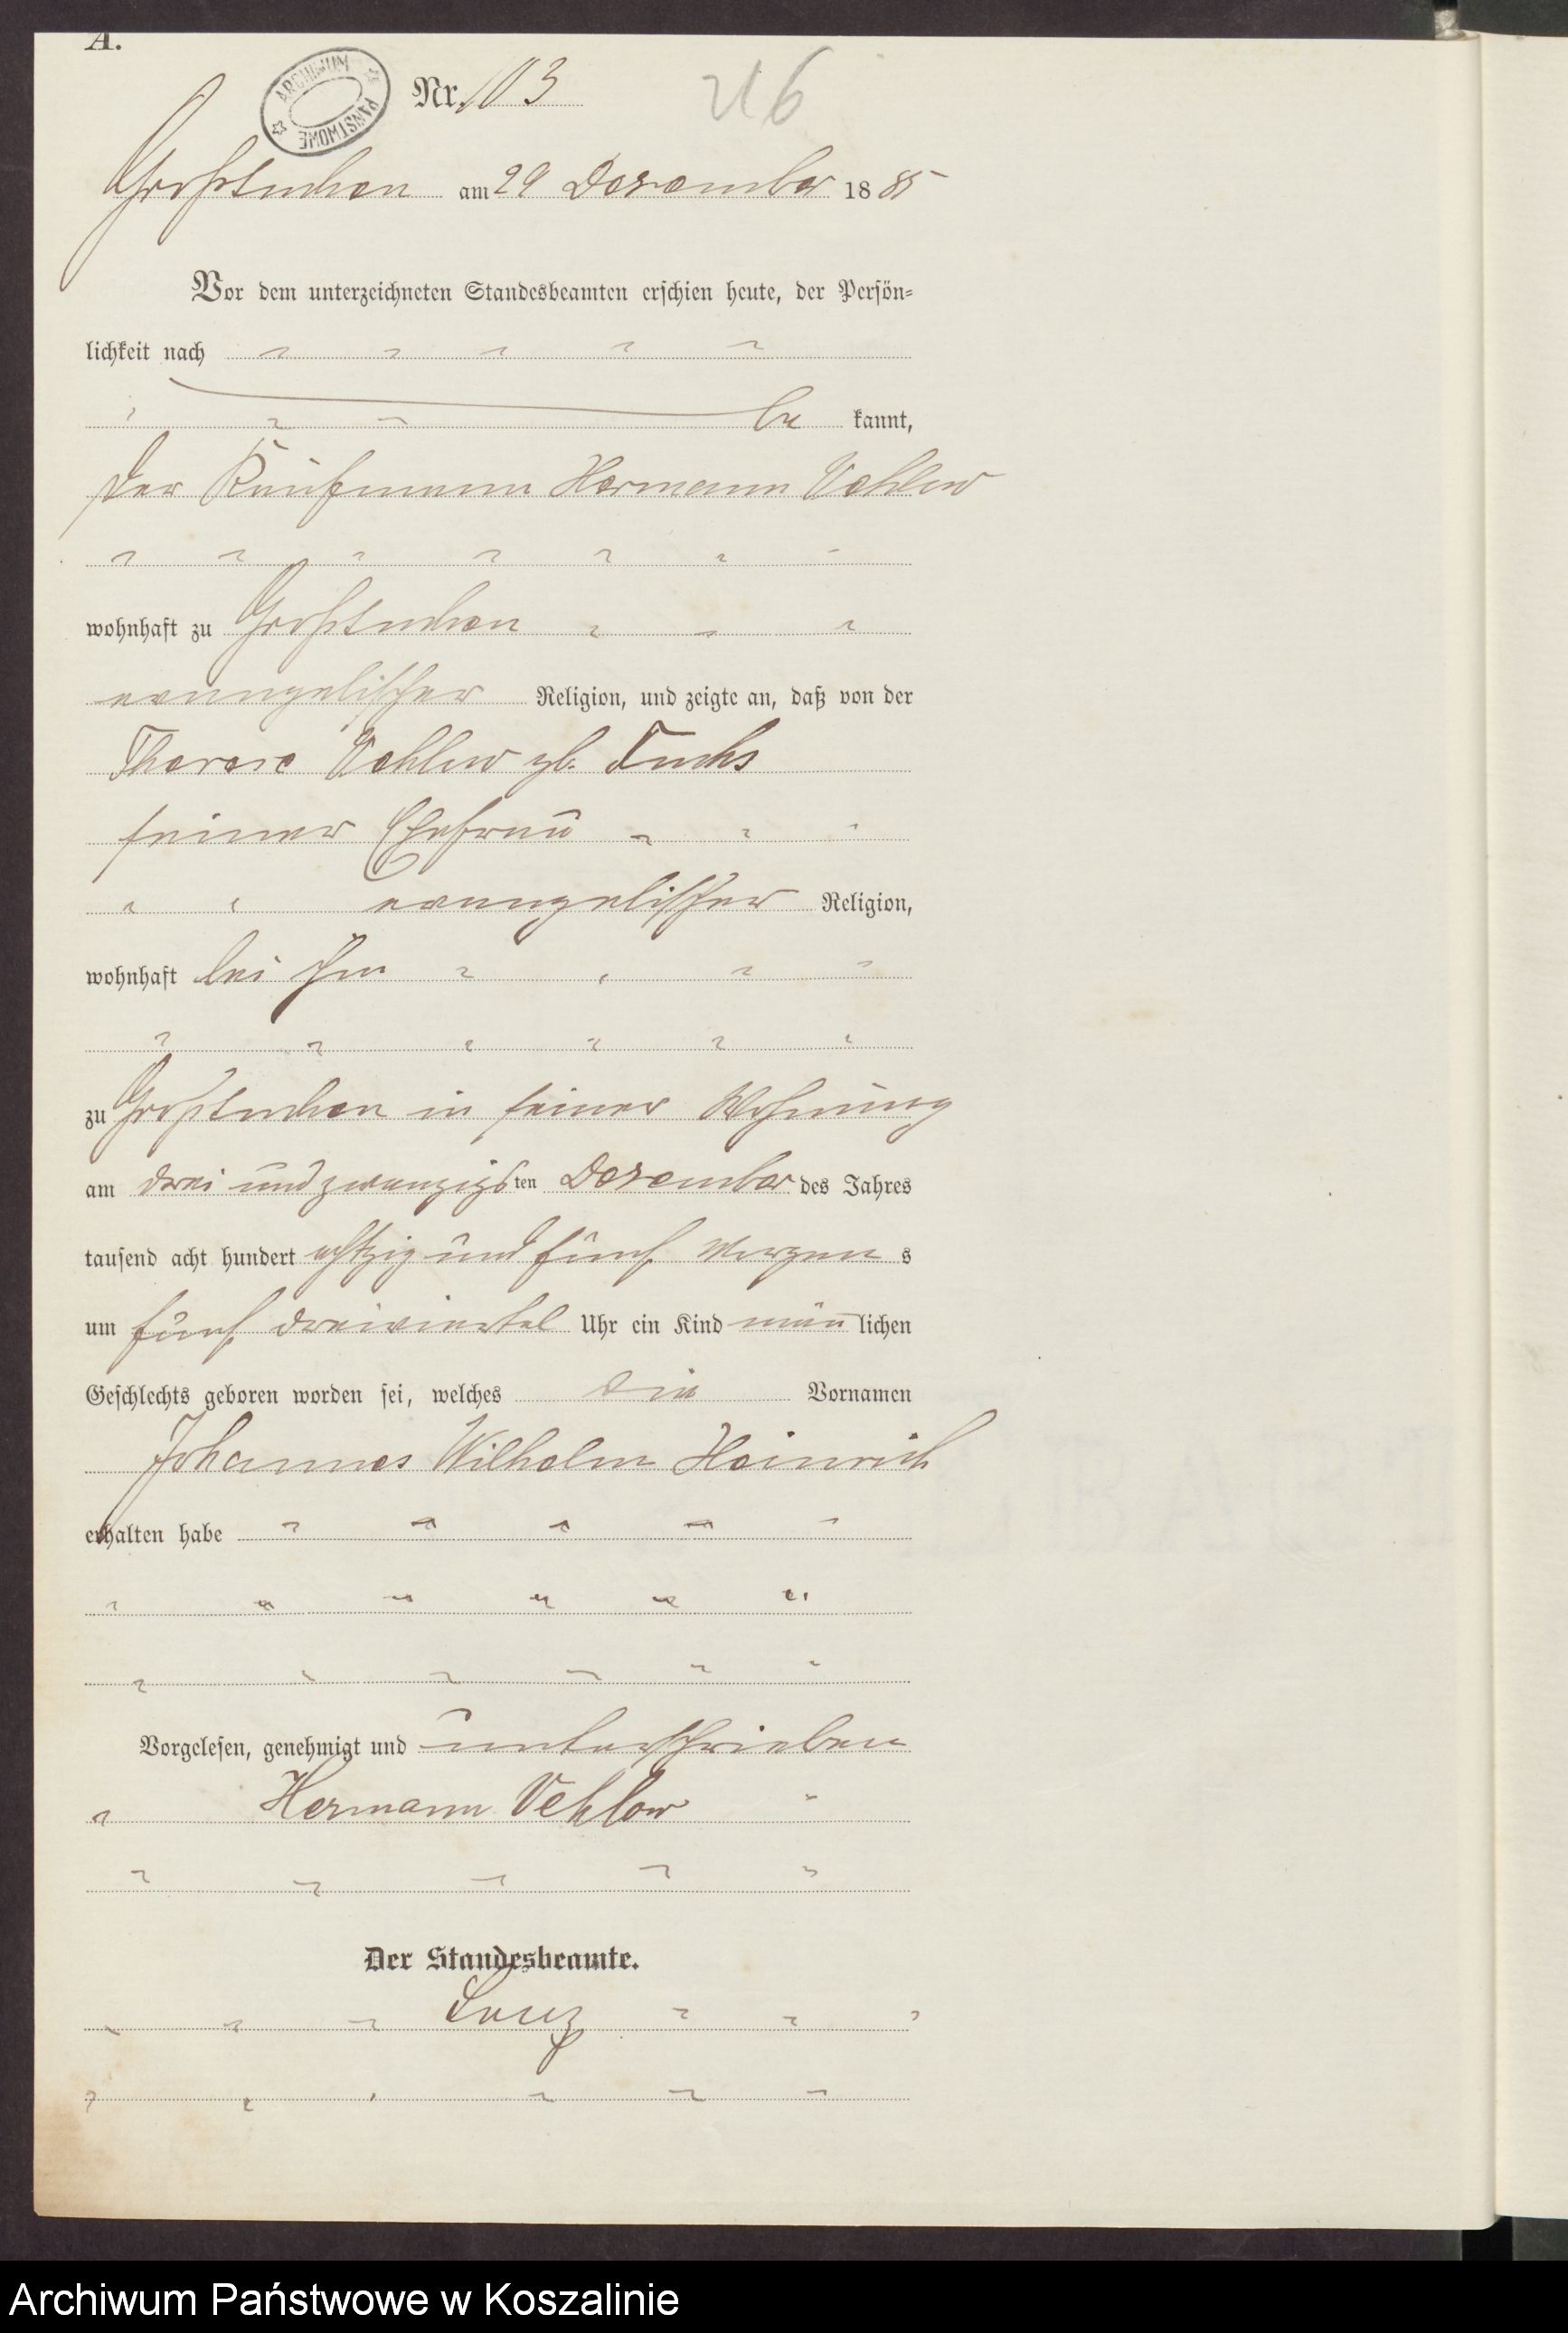 A.
ARCHIWUM PAŃSTWOWE
Nr. 103
Großtuchen am 29 Dezember 1885
Vor dem unterzeichneten Standesbeamten erschien heute, der Persön-
lichkeit nach
be kannt,
der Kaufmann Hermann Vehlow
wohnhaft zu Großtuchen
evangelischer Religion, und zeigte an, daß von der
Therese Vehlow gb. Fuchs
seiner Ehefrau
evangelischer Religion,
wohnhaft bei ihm
zu Großtuchen in seiner Wohnung
am drei und zwanzigsten Dezember des Jahres
tausend acht hundert achtzig und fünf Morgens
um fünf dreiviertel Uhr ein Kind männlichen
Geschlechts geboren worden sei, welches die Vornamen
Johannes Wilhelm Heinrich
erhalten habe
Vorgelesen, genehmigt und unterschrieben
Hermann Vehlow
Der Standesbeamte.
Archiwum Państwowe w Koszalinie